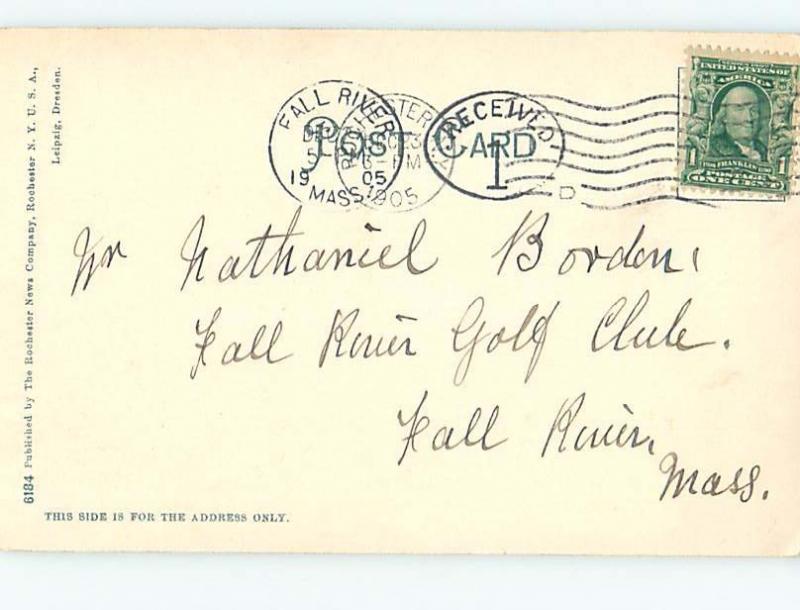 6184 Published by The Rochester News Company, Rochester N. Y. U. S. A.,
Leipzig, Dresden.
FALL RIVER
19 05
MASS.
ROCHESTER
23
6 - PM
1905
RECEIVED
1
D
POST CARD
UNITED STATES OF
AMERICA
1 FRANKLIN 1
POSTAGE
ONE CENT
Mr Nathaniel Borden,
Fall River Golf Club.
Fall River,
Mass.
THIS SIDE IS FOR THE ADDRESS ONLY.